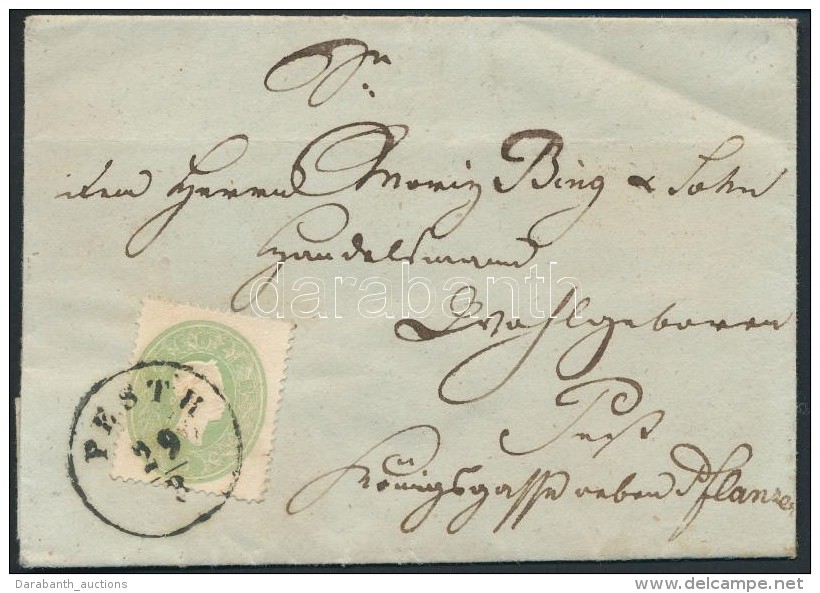 Sr
den Herrn Moriz Bing & Sohn
Handelsmann
Wohlgeboren
Pest
Königsgasse neben Pflanze
PESTH
29/8
darabanth
Darabanth_auctions
www.delcampe.net